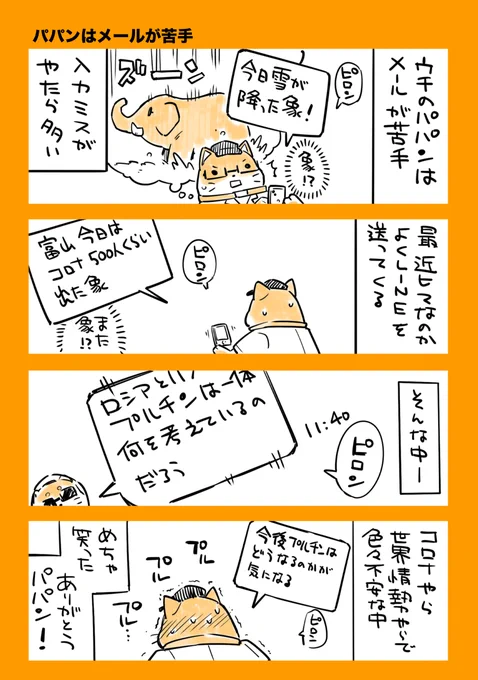 パパンはメールが苦手
ウチのパパンは
メールが苦手
ピロン
今日雪が
降った象!
象!?
ズーン
入力ミスが
やたら多い
最近ヒマなのか
よくLINEを
送ってくる
ピロン
富山今日は
コロナ500人くらい
出た象
また
象!?
そんな中ー
ピロン
11:40
ロシアとい
プルチンは一体
何を考えているの
だろう
コロナやら
世界情勢やらで
色々不安な中
今後プルチンは
どうなるのかが
気になる
ピロン
プル
プル
プル…
めちゃ
笑った
ありがとう
パパン!